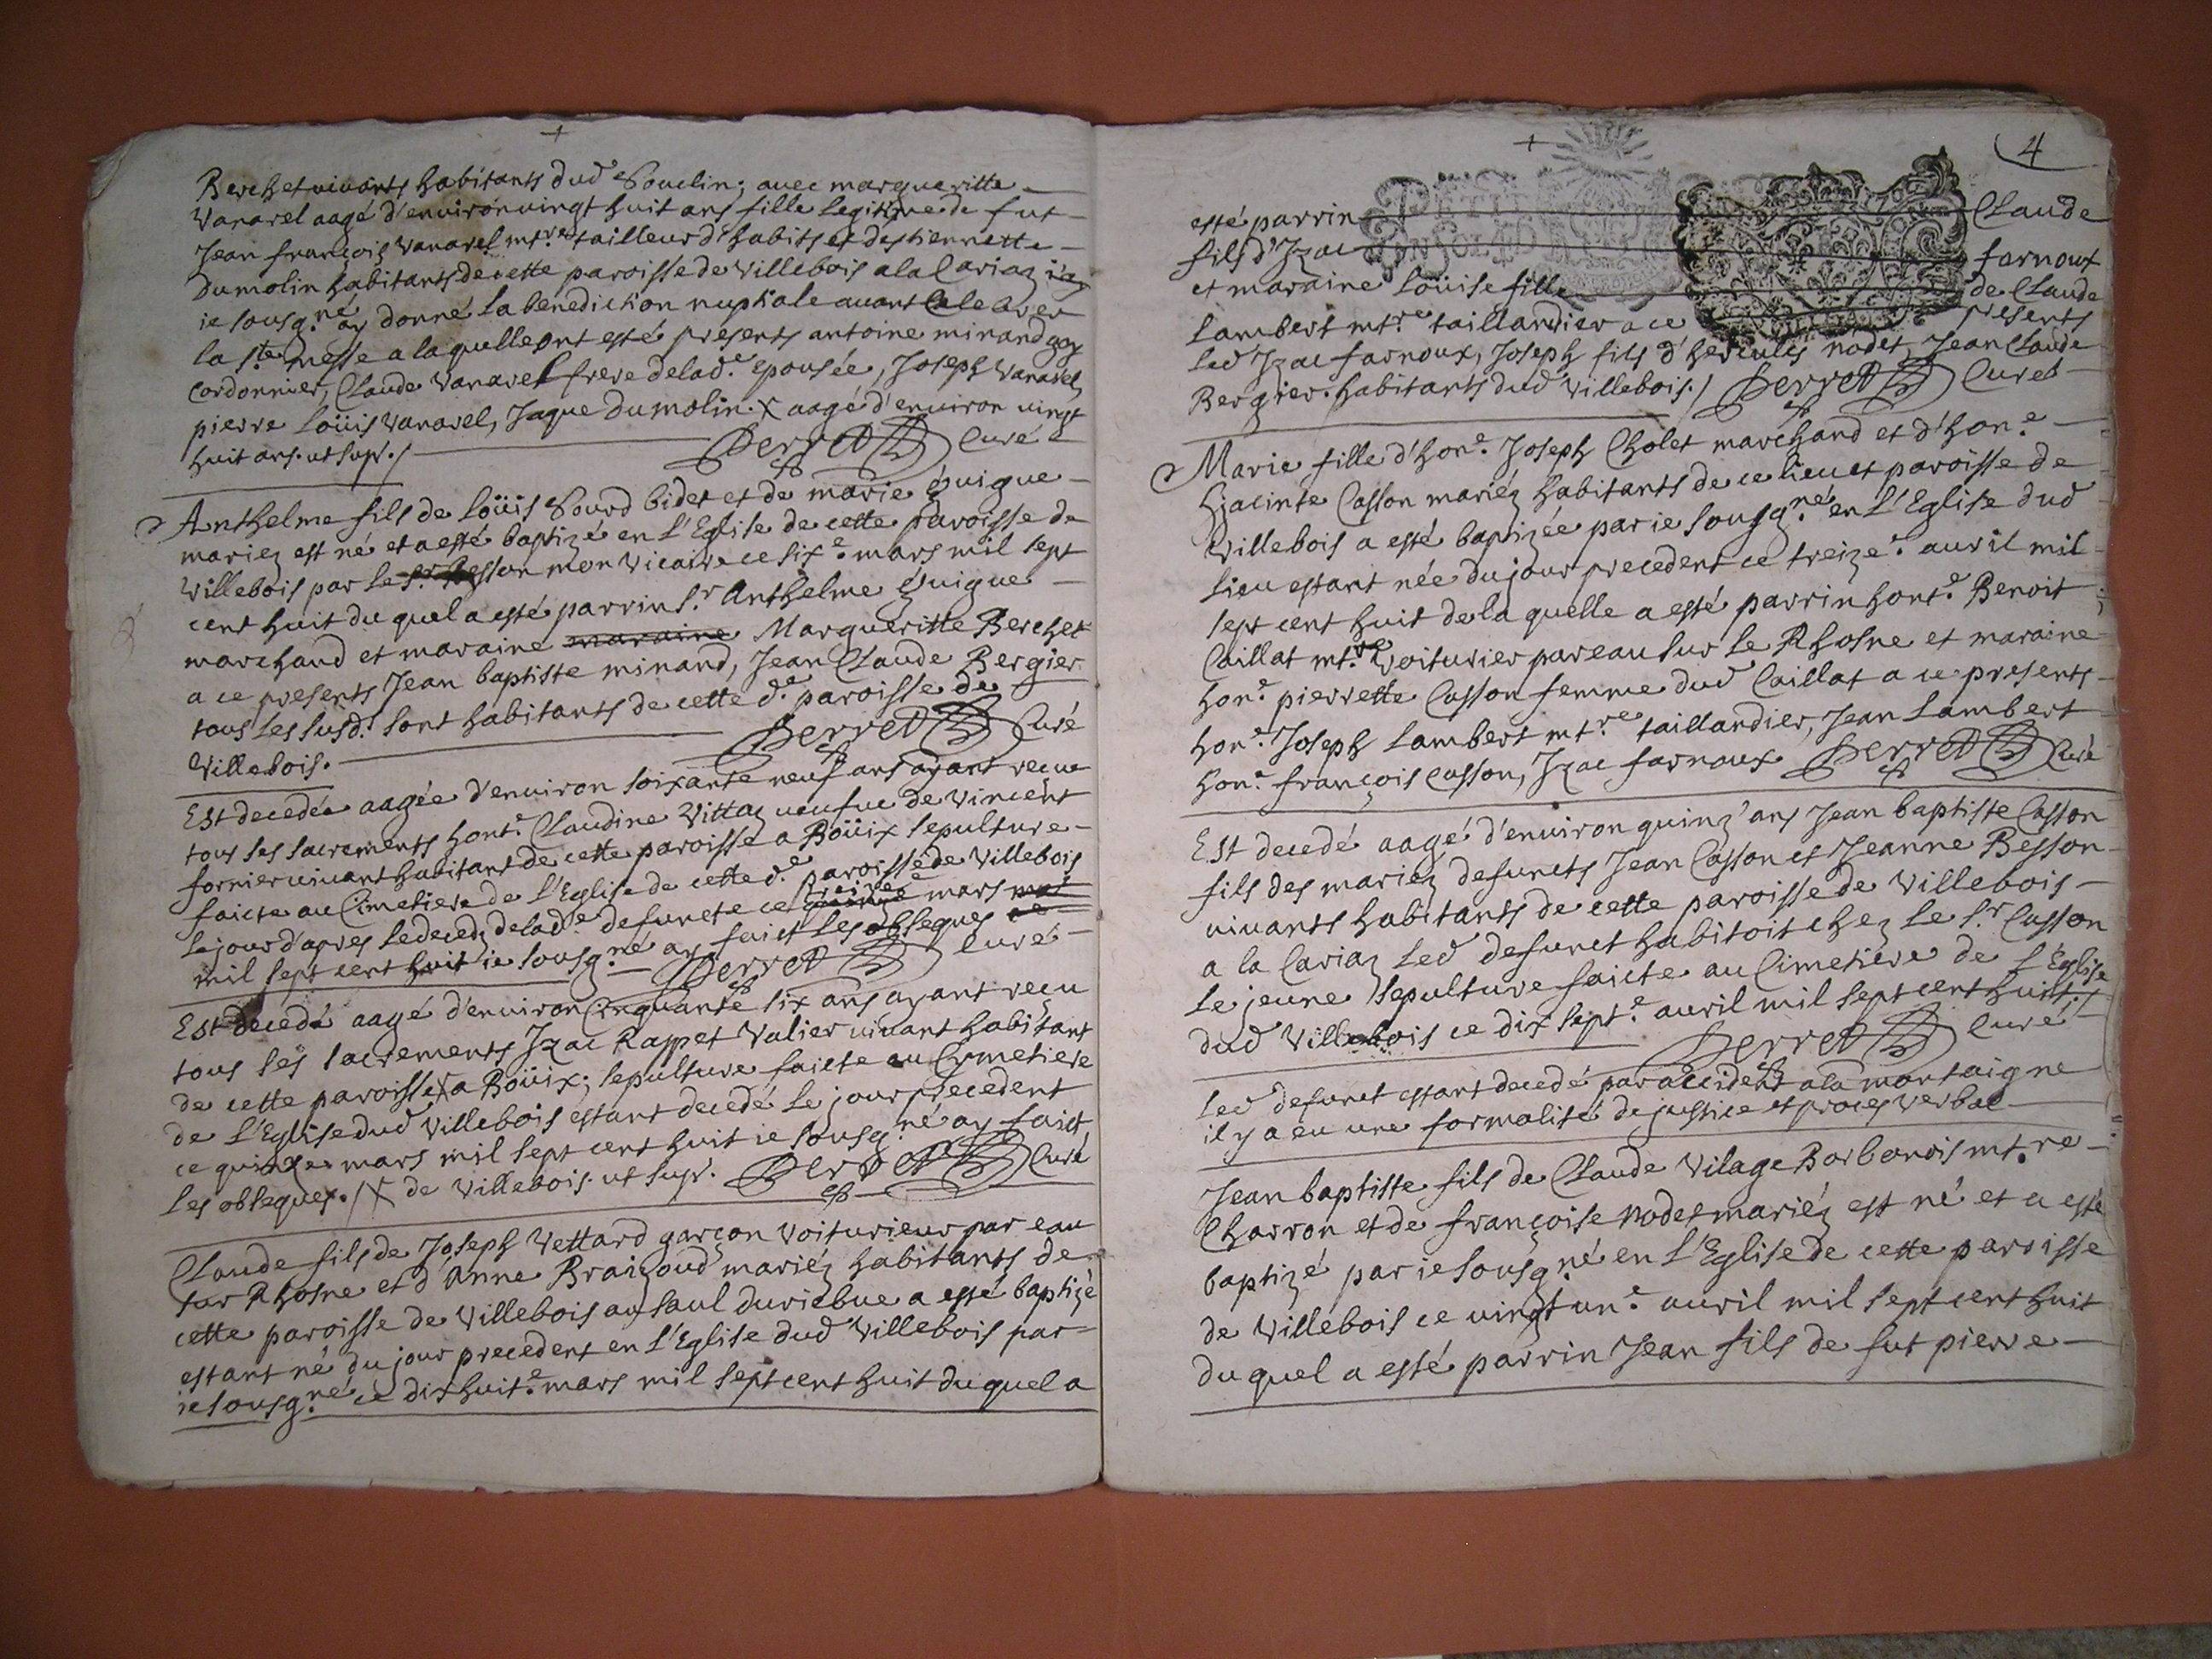 Berchet vivants habitants dud Souclin; avec margueritte
Vanarel aagé d'environ vingt huit ans fille legitime de fut
Jean françois Vanarel mtre tailleur d'habits et d'estiennette
Dumolin habitants de cette paroisse de Villebois a la Cariaz
ie sousg.né ay donné la benediction nuptiale avant celebrer
la s.te messe a la quelle ont esté presents antoine minand
Cordonnier, Claude Vanarel frere de lad.e epousée, Joseph Vanarel,
pierre Loüis Vanarel, Jaque Dumolin. X aagé d'environ vingt
huit ans. ut sup.r / Perret Curé
Anthelme fils de Loüis Sourd bidet et de marie guigue
mariez est né et a esté baptizé en l'Eglise de cette paroisse de
Villebois par le s.r Besson mon Vicaire ce six.e mars mil sept
cent huit du quel a esté parrin s.r Anthelme guigue
marchand et maraine maraine Margueritte Berchet
a ce presents Jean baptiste minand, Jean Claude Bergier
tous les susd.ts sont habitants de cette d.e paroisse de
Villebois. Perret Curé
Est decedée aagée d'environ soixante neuf ans ayant receue
tous ses sacrements hont.e Claudine Vittaz veufue de Vincent
fornier vivant habitant de cette paroisse a Boüix sepulture
faicte au Cimetiere de l'Eglise de cette d.e paroisse de Villebois
le jour d'apres le decedz de lad.e defuncte ce treize.e mars
mil sept cent huit ie sousg.né ay faict les obseques
Perret Curé
Est decedé aagé d'environ Cinquante six ans ayant receu
tous ses sacrements Izac Rappet Valier vivant habitant
de cette paroisse X a Boüix; sepulture faicte au Cymetiere
de l'Eglise dud Villebois estant decedé le jour precedent
ce quinze mars mil sept cent huit ie sousg.né ay faict
les obseques. / X de Villebois. ut sup.r Perret Curé
Claude fils de Joseph Vettard garçon Voiturieur par eau
sur Rhosne et d'Anne Braizoud mariéz habitants de
cette paroisse de Villebois au saul duriebue a esté baptizé
estant né du jour precedent en l'Eglise dud Villebois par
ie sousg.né ce dixhuit.e mars mil sept cent huit du quel a
4
esté parrin Claude
fils d'Izac farnoux
et maraine Loüise fille de Claude
Lambert mt.re taillandier a ce presents
led Izac farnoux, Joseph fils d'hercules nodet, Jean Claude
Bergier. habitants dud Villebois. / Perret Curé
Marie fille d'hon.e Joseph Cholet marchand et d'hon.e
Hjacinte Casson mariéz habitants de ce lieu et paroisse de
Villebois a esté baptizée par ie sousg.né en l'Eglise dud
lieu estant née du jour precedent ce treize.e auril mil
sept cent huit de la quelle a esté parrin hont.e Benoit
Caillat mt.re Voiturier par eau sur le Rhosne et maraine
hon.e pierrette Casson femme dud Caillat a ce presents
hon.e Joseph Lambert mt.re taillandier, Jean Lambert
hon.e françois Casson, Izac farnoux Perret Curé
Est decedé aagé d'environ quinz'ans Jean baptiste Casson
fils des mariez defuncts Jean Casson et Jeanne Besson
vivants habitants de cette paroisse de Villebois
a la Cariaz led defunct habitoit chez le s.r Casson
le jeune sepulture faicte au Cimetiere de l'Eglise
dud Villebois ce dix sept.e auril mil sept cent huit. /
Perret Curé
led defunct estant decedé par accident a la montaigne
il y a eu une formalité de justice et proces Verbal
Jean baptiste fils de Claude Vilage Barbonois mt.re
Charron et de françoise nodet mariéz est né et a esté
baptizé par ie sousg.né en l'Eglise de cette paroisse
de Villebois ce vingt un.e auril mil sept cent huit
du quel a esté parrin Jean fils de fut pierre